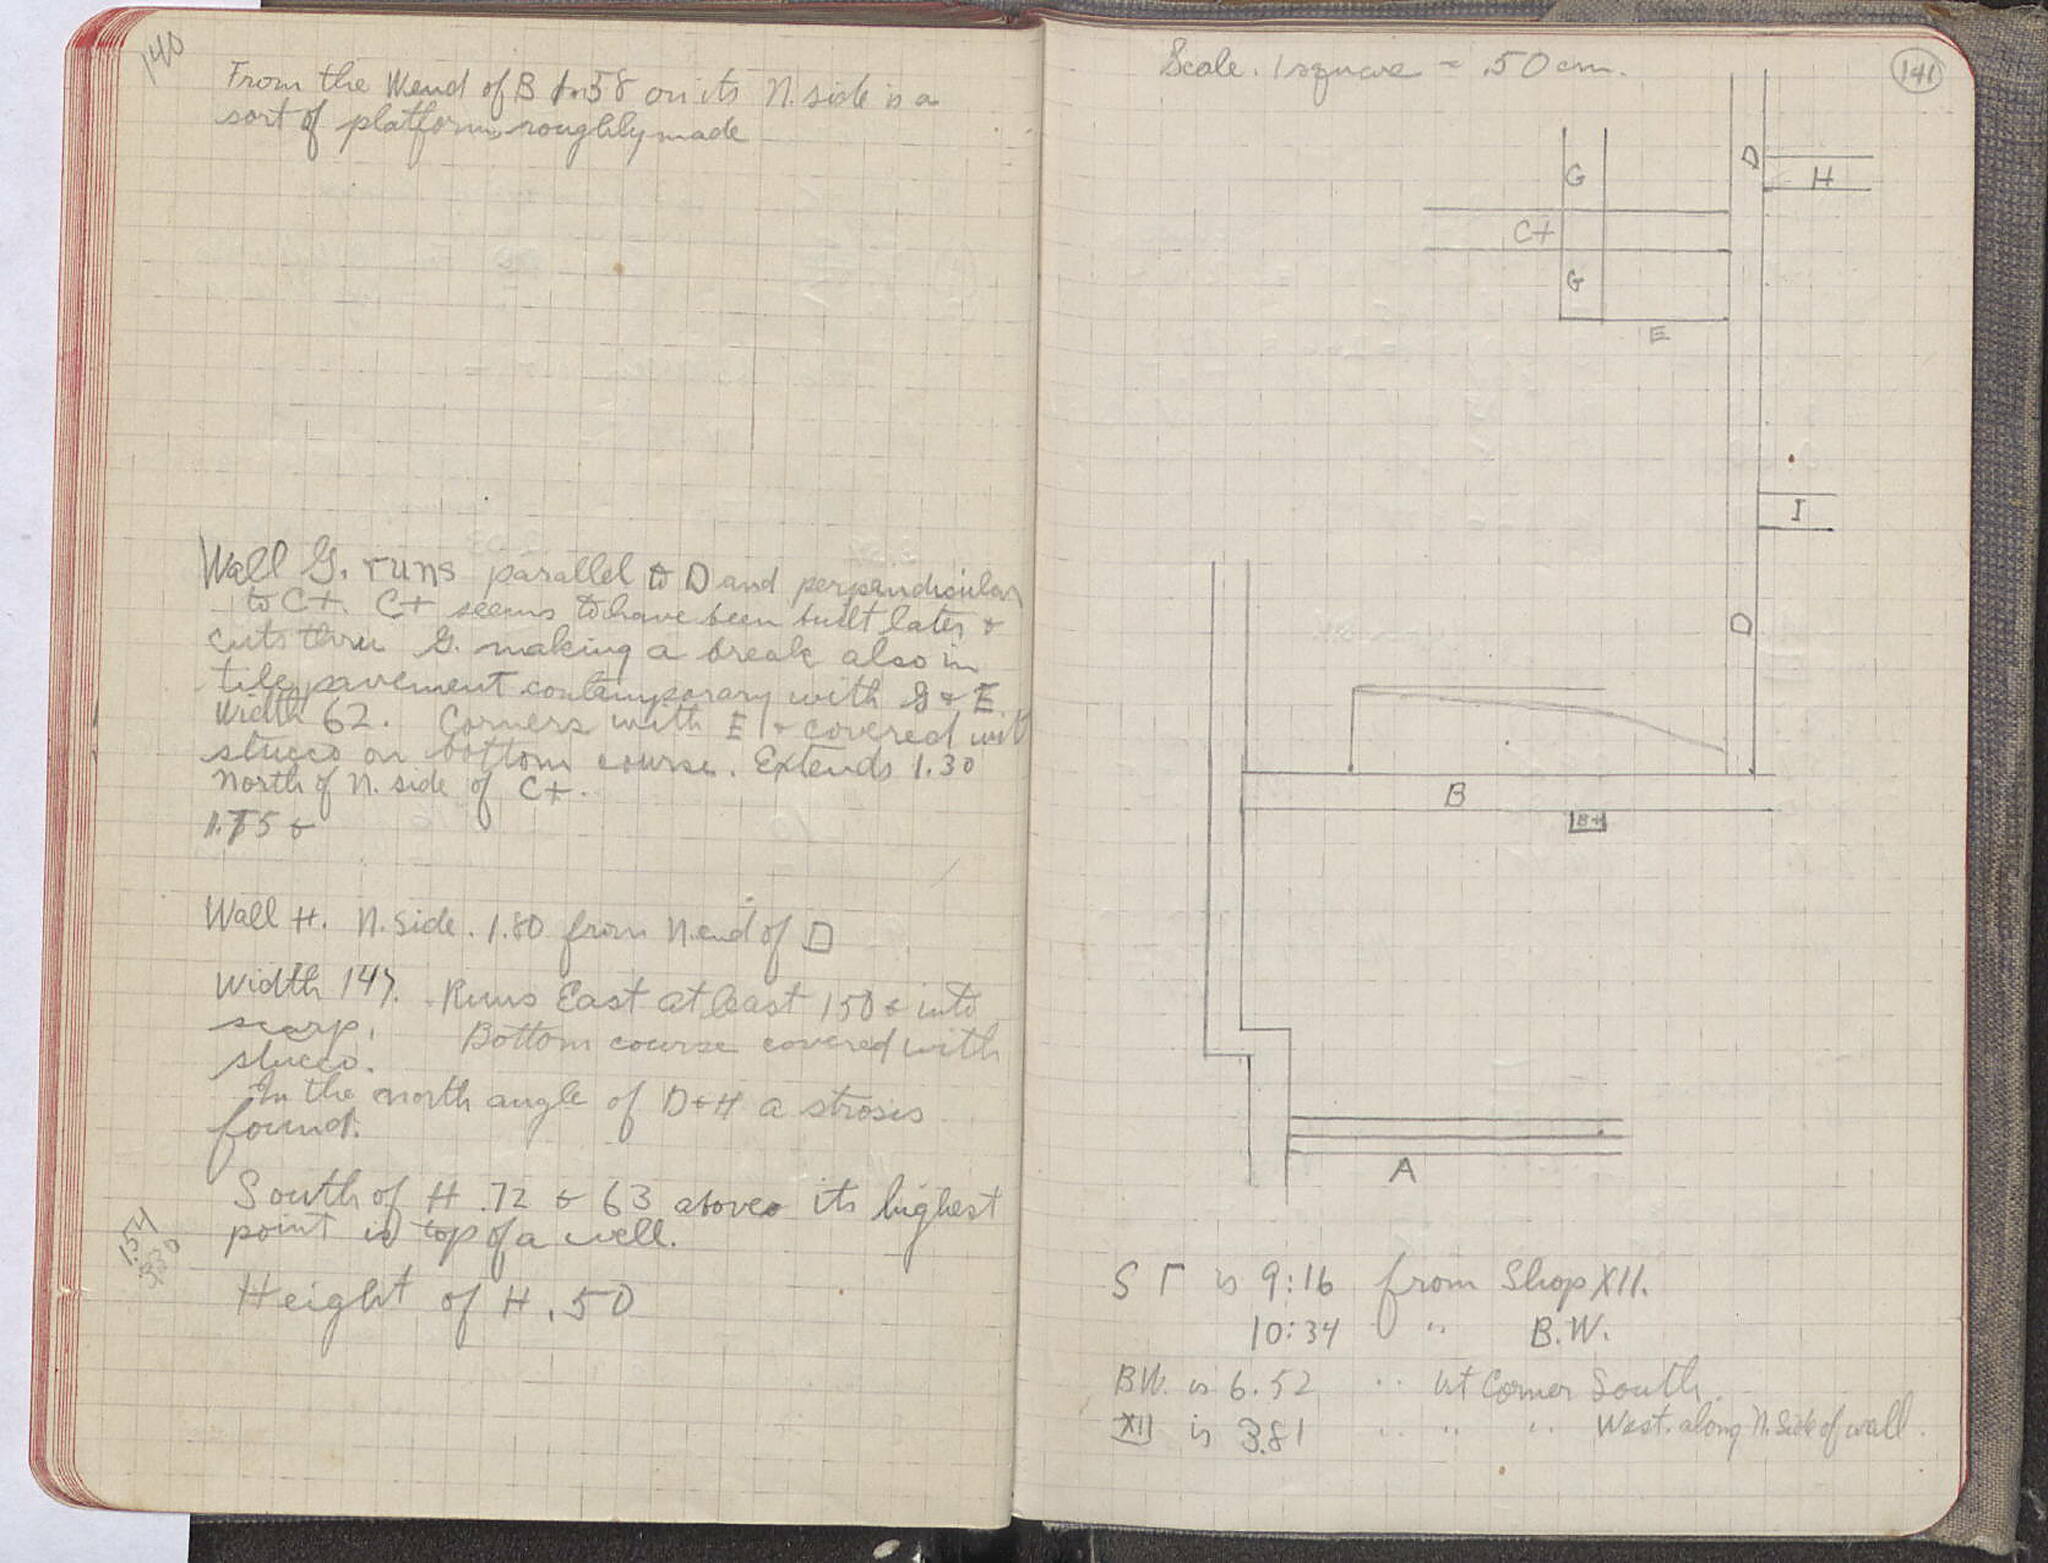 140
From the W end of B 1m58 on its N. side is a
sort of platform, roughly made
Wall G. runs parallel to D and perpendicular
to C+. C+ seems to have been built later &
cuts thru G. making a break also in
tile pavement contemporary with G & E.
Width 62. Corners with E & covered with
stucco on bottom course. Extends 1.30
North of N. side of C+.
Wall H. N. side. 1.80 from N. end of D
Width 147. Runs East at least 150 & into
scarp. Bottom course covered with
stucco.
In the north angle of D & H a strosis
found.
South of H .72 & 63 above its highest
point is top of a well.
1.54
Height of H .50
Scale. 1 square = .50 cm.
141
D
G
H
C+
G
E
I
D
B
B+
A
S Γ is 9:16 from Shop XII.
10:34 " B.W.
B.W. is 6.52 " Corner South.
XII is 3.81 " " " West. along N. Side of wall.